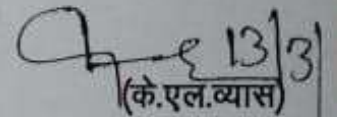 13/3
(के.एल.व्यास)